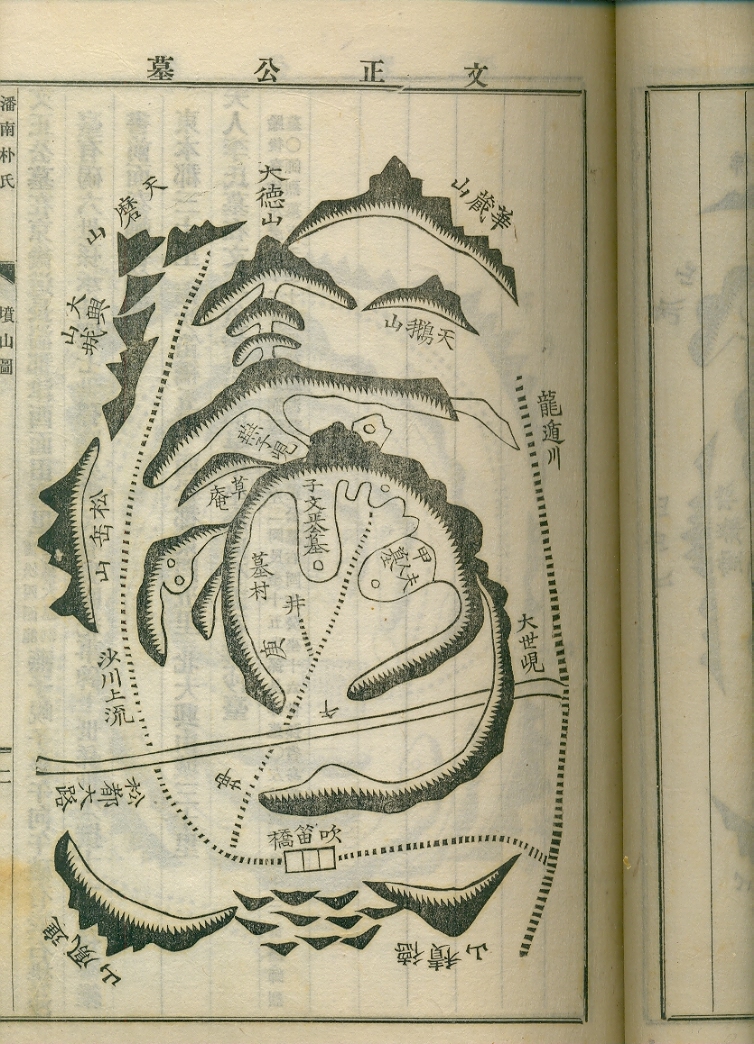 文正公墓
潘南朴氏
墳山圖
二
華藏山
大德山
天磨山
天鵝山
大興城山
龍遁川
松岳山
草庵
子文正公墓
甲
夫人墓
墓村
井
庚
大世峴
沙川上流
午
坤
松都大路
吹笛橋
進鳳山
德積山